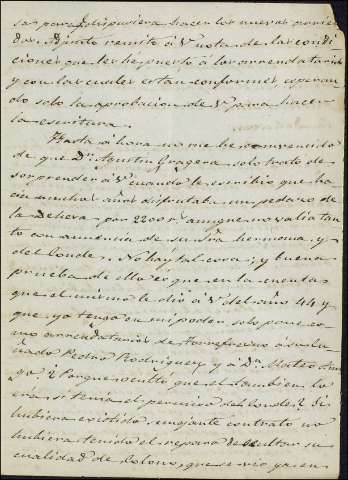 sas para q.e dispusiera hacer las nuevas
das. Adjunto remito á V. nota de las condi-
ciones que les he puesto á los arrendatarios
y con las cuales están conformes, esperan-
do solo la aprobacion de V. para hacer
la escritura.
Hasta ahora no me he convencido
de que Dn. Agustin Gragera solo trató de
sorprender á V. cuando le escribió que ha-
cia muchos años disfrutaba un pedazo de
la dehesa por 2200 rs. aunque no valia tan-
to con anuencia de su Sra. hermana, y
del conde. No hay tal cosa; y buena
prueba de ello es que en la cuenta
que el mismo le dió á V. del año 44 y
que ya tengo en mi poder, solo pone co-
mo arrendatarios de Torrefresno á su cu-
ñado Pedro Rodriguez y á Dn. Mateo
¿Porque ocultó que el tambien lo
era si tenia el permiso del conde? Si
hubiera existido semejante contrato no
hubiera tenido el reparo de ocultar su
cualidad de colono, que se vió ya en